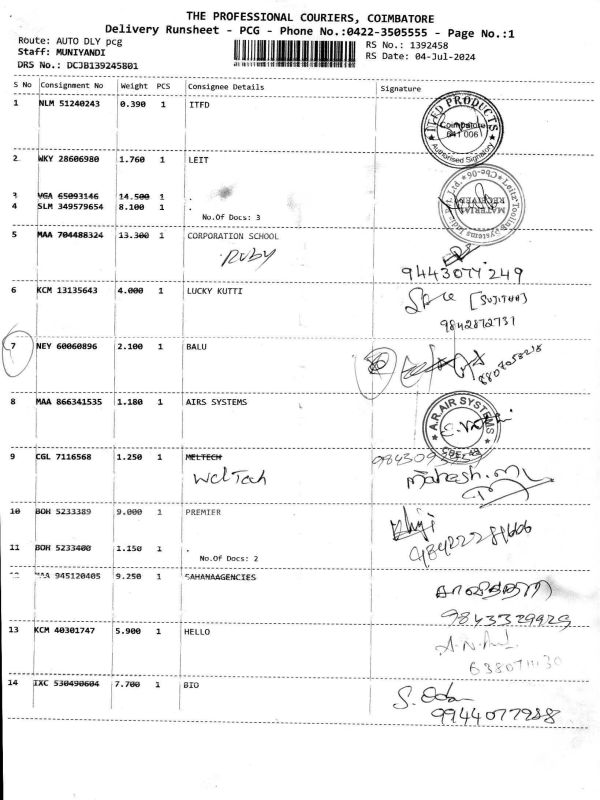 THE PROFESSIONAL COURIERS, COIMBATORE
Delivery Runsheet - PCG - Phone No.:0422-3505555 - Page No.:1
Route: AUTO DLY pcg
RS No.: 1392458
Staff: MUNIYANDI
RS Date: 04-Jul-2024
DRS No.: DCJB139245801
S No Consignment No Weight PCS Consignee Details Signature
1 NLM 51240243 0.390 1 ITFD
ITFD PRODUCTS
Coimbatore
641 006
Authorised Signatory
2 WKY 28606980 1.760 1 LEIT
3 VGA 65093146 14.500 1 .
4 SLM 349579654 8.100 1 .
No.Of Docs: 3
Leitz Tooling Systems India Pvt. Ltd. * Cbe-06 *
MATERIAL
RECEIVED
5 MAA 704488324 13.300 1 CORPORATION SCHOOL
Ruby
6 KCM 13135643 4.000 1 LUCKY KUTTI
[SUJITHA]
9842872731
7 NEY 60060896 2.100 1 BALU
8 MAA 866341535 1.180 1 AIRS SYSTEMS
A.R.AIR SYSTEMS
9 CGL 7116568 1.250 1 MELTECH
Wel Tech
Mahesh.
10 BOH 5233389 9.000 1 PREMIER
11 BOH 5233400 1.150 1 .
No.Of Docs: 2
12 MAA 945120405 9.250 1 SAHANAAGENCIES
9843329929
13 KCM 40301747 5.900 1 HELLO
14 IXC 530490604 7.700 1 BIO
9944077988